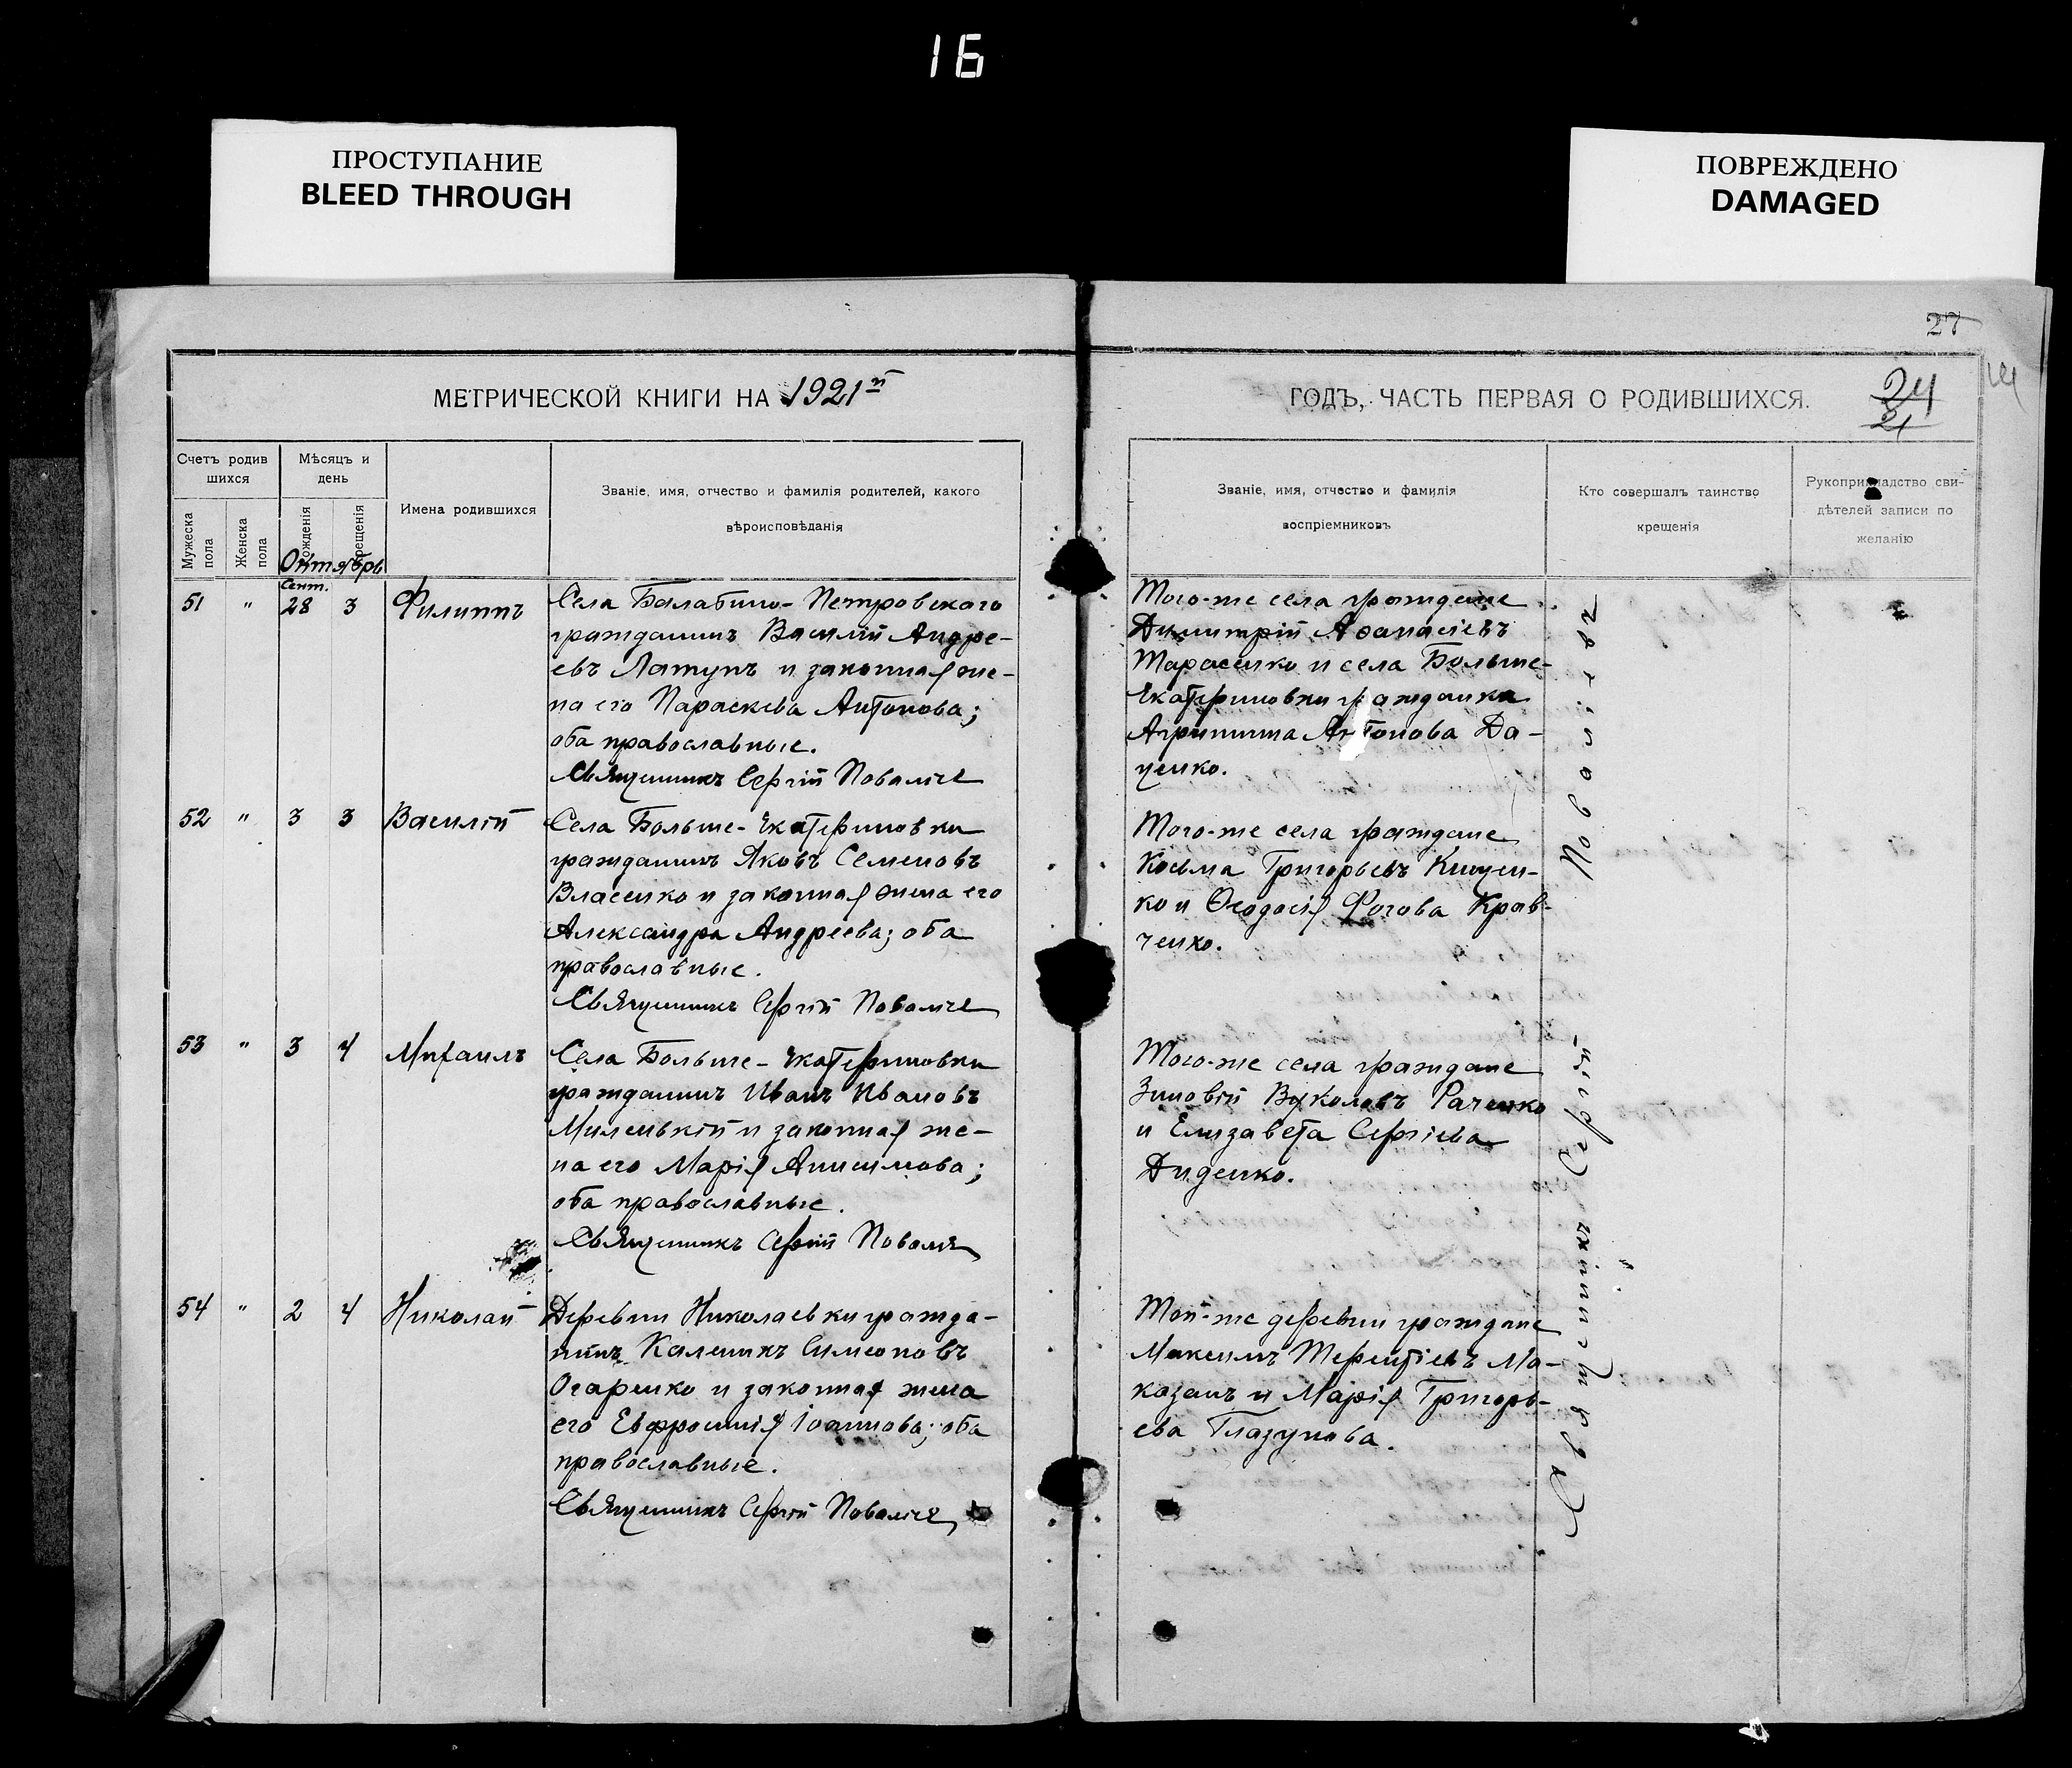 16
ПРОСТУПАНИЕ
BLEED THROUGH
ПОВРЕЖДЕНО
DAMAGED
27
МЕТРИЧЕСКОЙ КНИГИ НА 1921й
ГОДЪ, ЧАСТЬ ПЕРВАЯ О РОДИВШИХСЯ.
24
21
Счетъ родив
шихся
Мужеска
пола
Женска
пола
Мѣсяцъ и
день
рожденія
крещенія
Октябрь
Имена родившихся
Званіе, имя, отчество и фамилія родителей, какого
вѣроисповѣданія
Званіе, имя, отчество и фамилія
воспріемниковъ
Кто совершалъ таинство
крещенія
Рукоприкладство сви-
дѣтелей записи по
желанію
Сент.
51 " 28 3 Филиппъ
Села Балабино-Петровскаго
гражданинъ Василій Андре-
евъ Латунъ и законная же-
на его Параскева Антонова;
оба православные.
Священникъ Сергій Поволіче
Того-же села граждане
Димитрій Афанасіевъ
Тарасенко и села Больше-
Екатериновки гражданка
Агрипина Антонова Да-
ценко.
52 " 3 3 Василій
Села Больше-Екатериновки
гражданинъ Яковъ Семеновъ
Власенко и законная жена его
Александра Андреева; оба
православные.
Священникъ Сергій
Того-же села граждане
Косьма Григорьевъ Кищен-
ко и Феодосія Фотова Крав-
ченко.
53 " 3 4 Михаилъ
Села Больше-Екатериновки
гражданинъ Иванъ Ивановъ
Миленькій и законная же-
на его Марія Анисимова;
оба православные.
Священникъ Сергій
Того-же села граждане
Зиновій Вуколовъ Раченко
и Елизавета Сергіева
Диденко.
54 " 2 4 Николай
Деревни Николаевки гражда-
нинъ Калиникъ Симеоновъ
Огаренко и законная жена
его Евфросинія Іоаннова; оба
православные.
Священникъ Сергій
Той-же деревни граждане
Максимъ Терентіевъ Ма-
казанъ и Марія Григорь-
ева Глазунова.
Священникъ Сергій